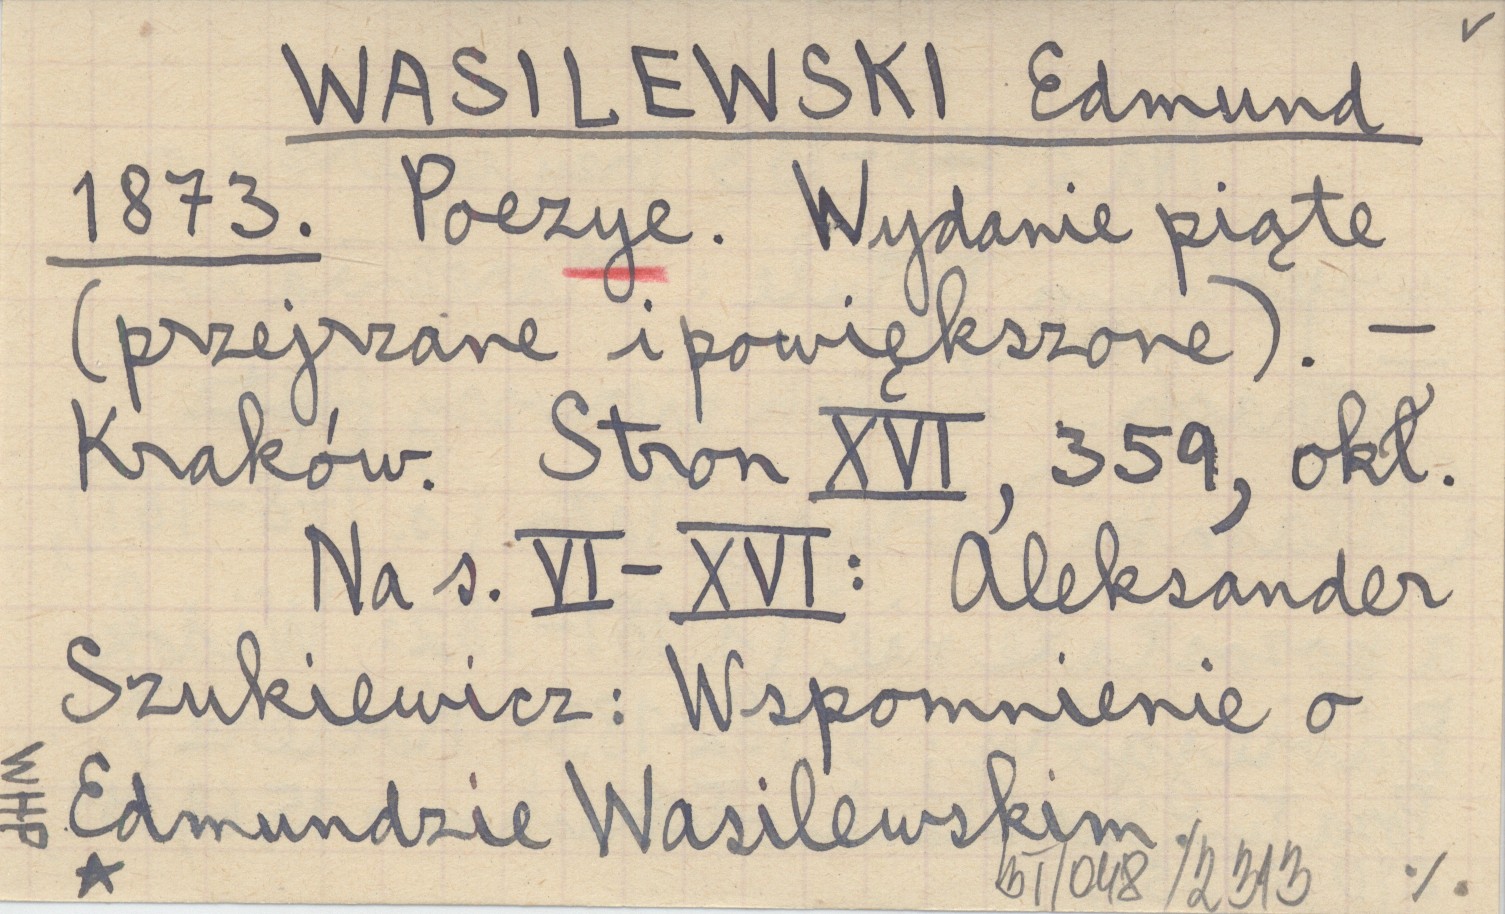 WASILEWSKI Edmund
1873. Poezye. Wydanie piąte
(przejrzane i powiększone). —
Kraków. Stron XVI, 359, okł.
Na s. VI–XVI: Aleksander
Szukiewicz: Wspomnienie o
Edmundzie Wasilewskim.
WHP